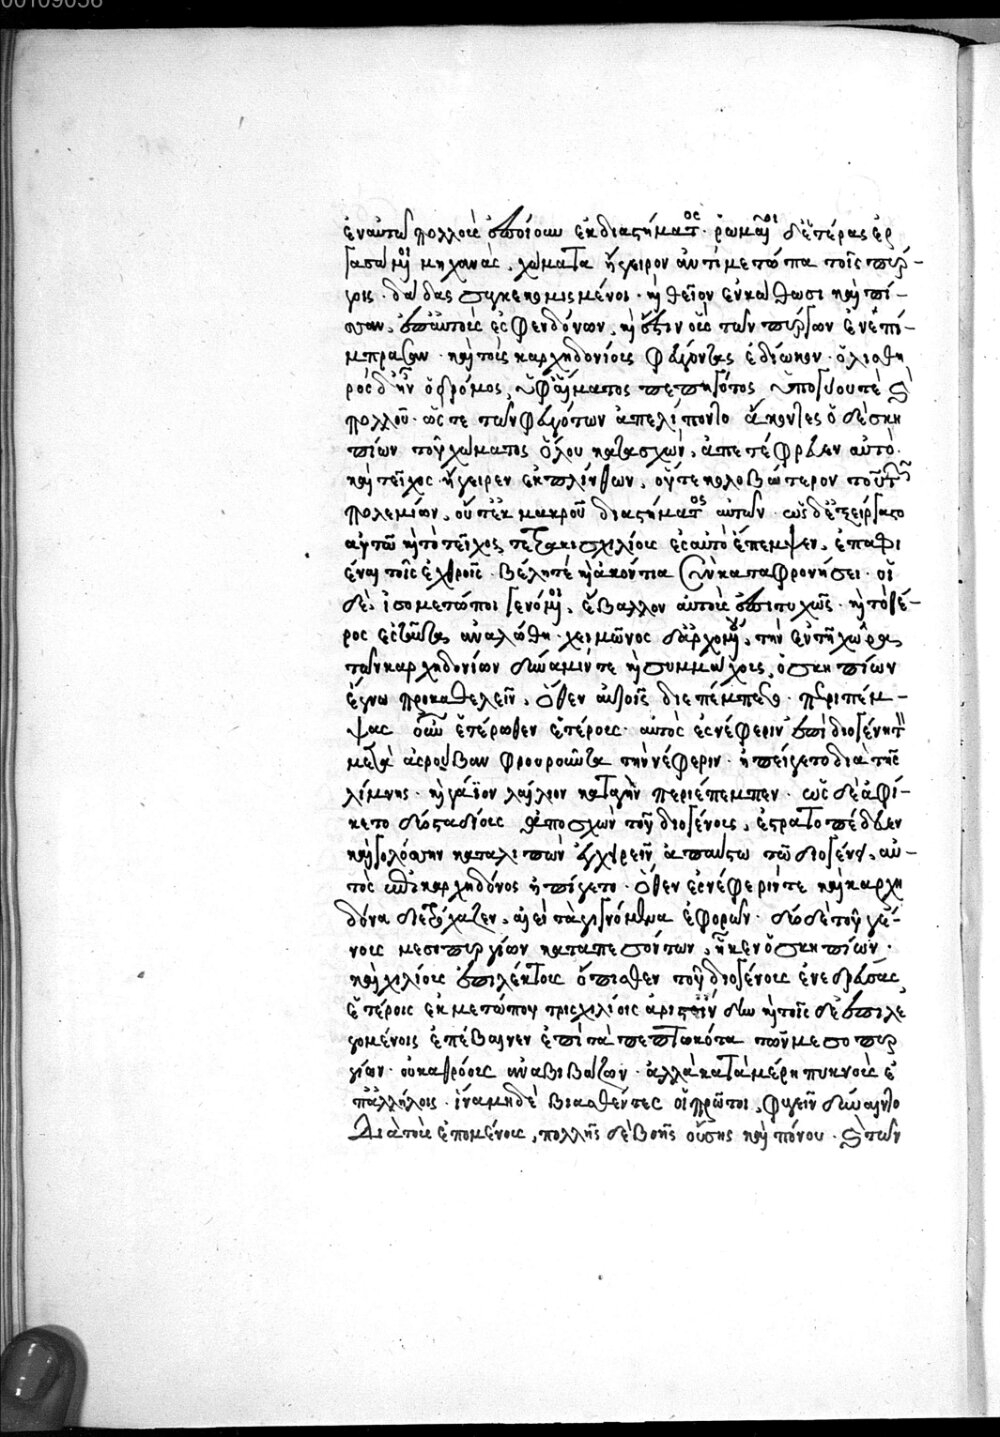 00109056
ἐν αὐτῶ πολλοὺς ἐποίουν ἐκ διαστήματος· ῥωμαῖοι δ' ἑτέρας ἐρ
γασάμενοι μηχανὰς, χώματα ἤγειρον ἀντιμέτωπα τοῖς πύρ-
γοις· δᾷδας συγκεκομισμένοι· καὶ θεῖον ἐν κάθωσι καὶ πί-
σσαν, ἐπ' αὐτοὺς ἐσφενδόνων, καὶ ἔστιν οὓς τῶν πύργων ἐνεπί-
μπρασαν· καὶ τοὺς καρχηδονίους φεύγοντας ἐδίωκον· ὀλισθη
ρὸς δ' ἦν ὁ δρόμος, ὑφ' αἵματος πεπηγότος ὑπογύου τε καὶ
πολλοῦ· ὥστε τῶν φευγόντων ἀπελίποντο ἄκοντες ὁ δὲ σκη
πίων τοῦ χώματος ὅλου κατασχὼν, ἀπετάφρευεν αὐτὸ·
καὶ τεῖχος ἤγειρεν ἐκ πλίνθων, οὔτε κολοβώτερον τοῦ τῶν
πολεμίων, οὔτ' ἐκ μακροῦ διαστήματος αὐτῶν· ὡς δ' ἐξείργαστο
αὐτῶ καὶ τὸ τεῖχος, τετρακισχιλίους ἐς αὐτὸ ἔπεμψεν, ἐπαφι
έναι τοῖς ἐχθροῖς· βέλη τὲ καὶ ἀκόντια σὺν καταφρονήσει· οἱ
δὲ, ἰσομέτωποι γενόμενοι, ἔβαλλον αὐτοὺς ἐπιτυχῶς· καὶ τὸ θέ-
ρος ἐς ταῦτα ἀναλώθη· χειμῶνος δ' ἀρχομένου, τὴν ἐν τῆ χώρα
τῶν καρχηδονίων δύναμίν τε καὶ συμμάχους, ὁ σκηπίων
ἔγνω προκαθελεῖν, ὅθεν αὐτοῖς διεπέμπετο· περιπέμ-
ψας οὖν ἑτέρωθεν ἑτέρους· αὐτὸς ἐς νέφεριν ἐπὶ διογένη τὸν
μετὰ ἀσρούβαν φρουροῦντα τὴν νέφεριν· ἠπείγετο διὰ τῆς
λίμνης· καὶ γάϊον λαίλιον κατὰ γῆν περιέπεμπεν· ὡς δὲ ἀφί-
κετο δύο σταδίους ἀποσχὼν τοῦ διογένους, ἐστρατοπέδευεν
καὶ γολόσσην καταλιπὼν ἐγχειρεῖν ἀπαύστως τῶ διογένει, αὐ-
τὸς ἐπὶ καρχηδόνος ἠπείγετο· ὅθεν ἐς νέφερίν τε καὶ καρχη
δόνα διεξόλαζεν, αἰεὶ τὰ γιγνόμενα ἐφορῶν· δύο δὲ τοῦ γέ-
νους μεσοπυργίων καταπεσόντων, ἧκεν ὁ σκηπίων·
καὶ χιλίους ἐπιλέκτους ὄπισθεν τοῦ διογένους ἐνεδρεύσας,
ἑτέροις ἐκ μετώπου τρισχιλίοις ἀρίστοιν δύο καὶ τοῖς δὲ ἐπιλε
γομένοις ἐπέβαινεν ἐπὶ τὰ πεπτωκότα τῶν μεσοπυρ
γίων· οὐκ ἀθρόους ἀναβιβάζων· ἀλλὰ κατὰ μέρη πυκνοὺς ἐ
παλλήλοις· ἵνα μηδὲ βιασθέντες οἱ πρῶτοι, φυγεῖν δύναιντο
διὰ τοὺς ἑπομένους, πολλῆς δὲ βοῆς οὔσης καὶ πόνου· καὶ τῶν